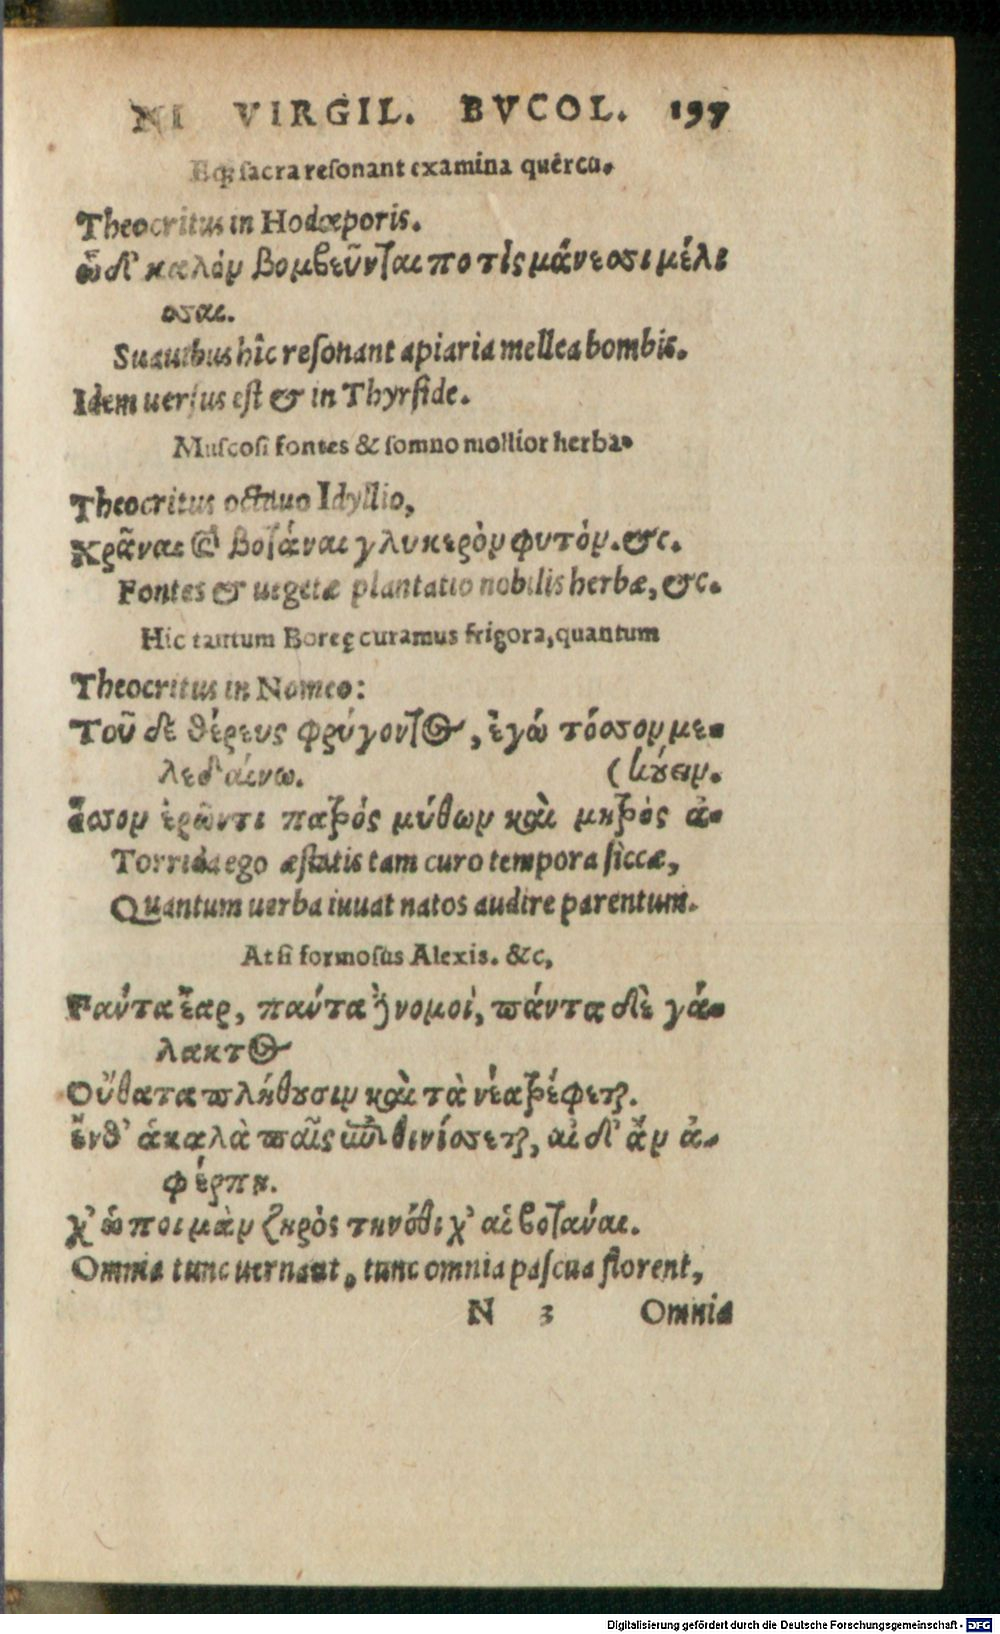 NI VIRGIL. BVCOL. 197
Eq́ꝫ sacra resonant examina quercu.
Theocritus in Hodœporis.
ὧδ' καλὸν βομβεῦνται ποτὶ σμάνεοσι μέλι
σσαι.
Suauibus hîc resonant apiaria mellea bombis.
Idem uersus est & in Thyrside.
Muscosi fontes & somno mollior herba.
Theocritus octauo Idyllio,
Κρᾶναι καὶ βοτάναι γλυκερὸν φυτόν. &c.
Fontes & uegetæ plantatio nobilis herbæ, &c.
Hic tantum Boreę curamus frigora, quantum
Theocritus in Nomeo:
Τοῦ δὲ θέρευς φρύγοντος, ἐγώ τόσσον με-
λεδαίνω. (κούειν.
ὅσσον ἐρῶντι πατρός μύθων καὶ μητρὸς ἀ-
Torrida ego æstatis tam curo tempora siccæ,
Quantum uerba iuuat natos audire parentum.
At si formosus Alexis. &c,
Γαύτα ἔαρ, παύτα ἢ νομοὶ, πάντα δὲ γά-
λακτος
Οὔθατα πλήθουσιν καὶ τὰ νέα τρέφεται.
ἔνθ' ἁ καλὰ παῖς ἐπινίσσεται, αἰ δ' ἂν ἀ-
φέρπη.
χ' ὡ ποιμὰν ξηρὸς τηνόθι χ' αἱ βοτάναι.
Omnia tunc uernant, tunc omnia pascua florent,
N 3 Omnia
Digitalisierung gefördert durch die Deutsche Forschungsgemeinschaft - DFG